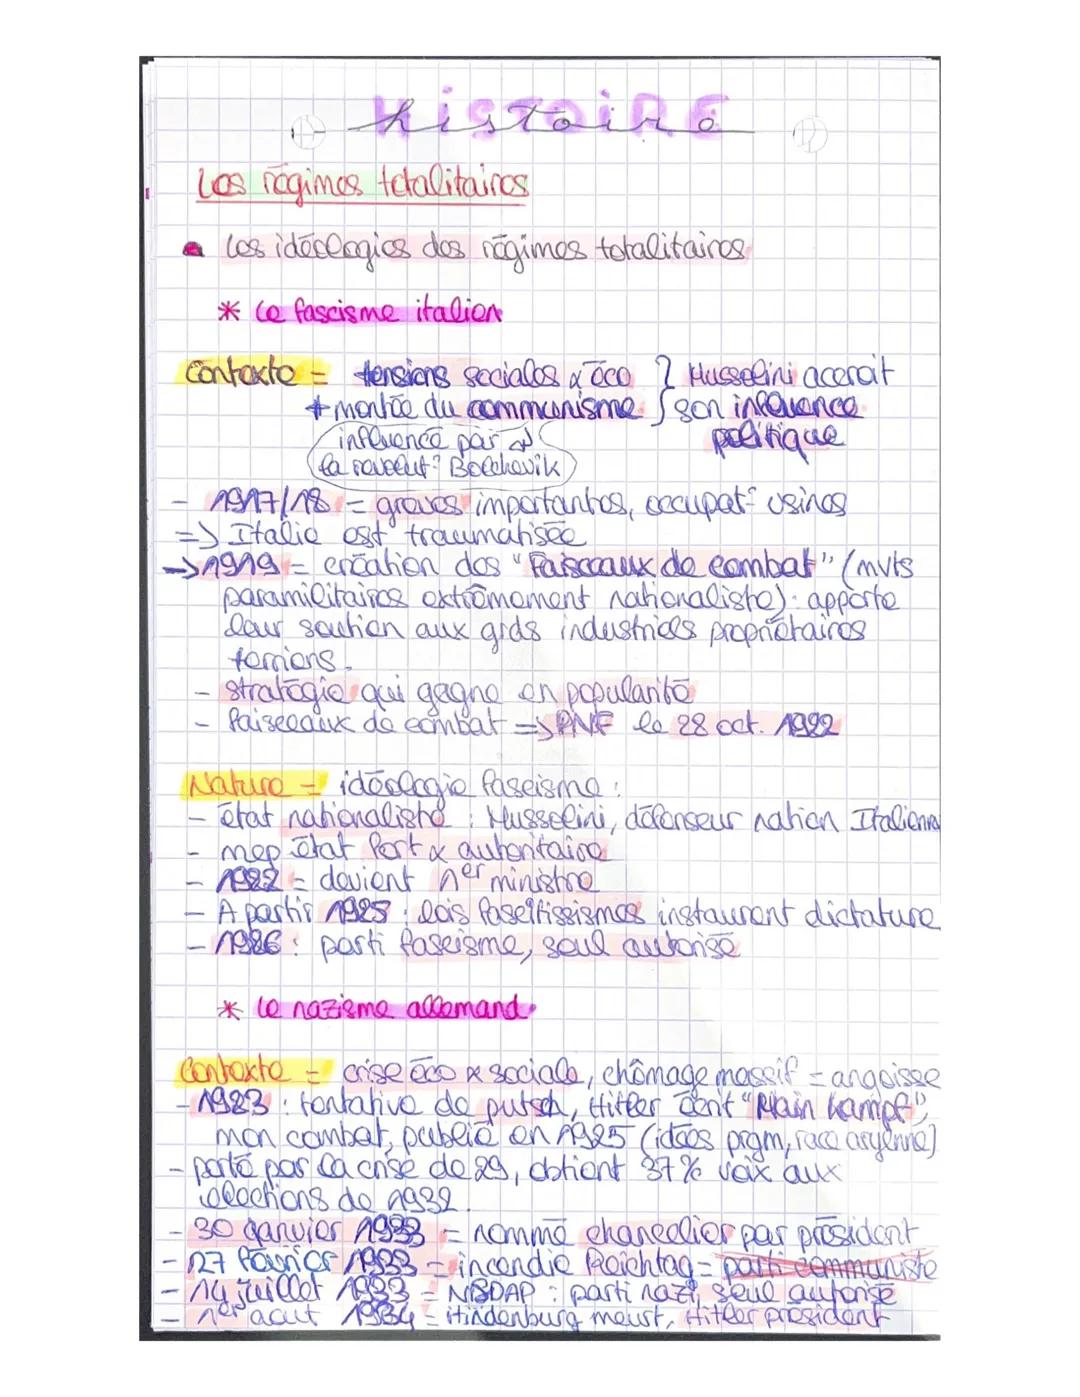 histoire
Les régimes totalitaires
Les idéologies des régimes totalitaires
* Le fascisme italien
Contexte = tensions sociales & éco } Mussolini accroit
+ montée du communisme } son influence
politique
influencé par
la revolut° Bolchevik
- 1917/18 = grèves importantes, occupat° usines
=> Italie est traumatisée
-> 1919 = création des "Faisceaux de combat" (mvts
paramilitaires extrêmement nationaliste) : apporte
leur soutien aux grds industriels propriétaires
terriens.
- stratégie qui gagne en popularité
- Faisceaux de combat => PNF le 28 oct. 1922
Nature = idéologie fascisme :
- état nationaliste : Mussolini, défenseur nation Italienne
- mep état fort & autoritaire
- 1922 = devient 1er ministre
- A partir 1925 : lois fascitissismes instaurent dictature
- 1926 : parti fascisme, seul autorisé
* Le nazisme allemand
Contexte = crise éco & sociale, chômage massif = angoisse
- 1923 : tentative de putsch, Hitler écrit "Main kampf",
mon combat, publié en 1925 (idées prgm, race aryenne)
- porté par la crise de 29, obtient 37% voix aux
élections de 1932.
- 30 janvier 1933 = nommé chancelier par président
- 27 février 1933 = incendie Reichtag = parti communiste
- 14 juillet 1933 = NSDAP : parti nazi, seul autorisé
- 1er aout 1934 = Hindenburg meurt, Hitler président